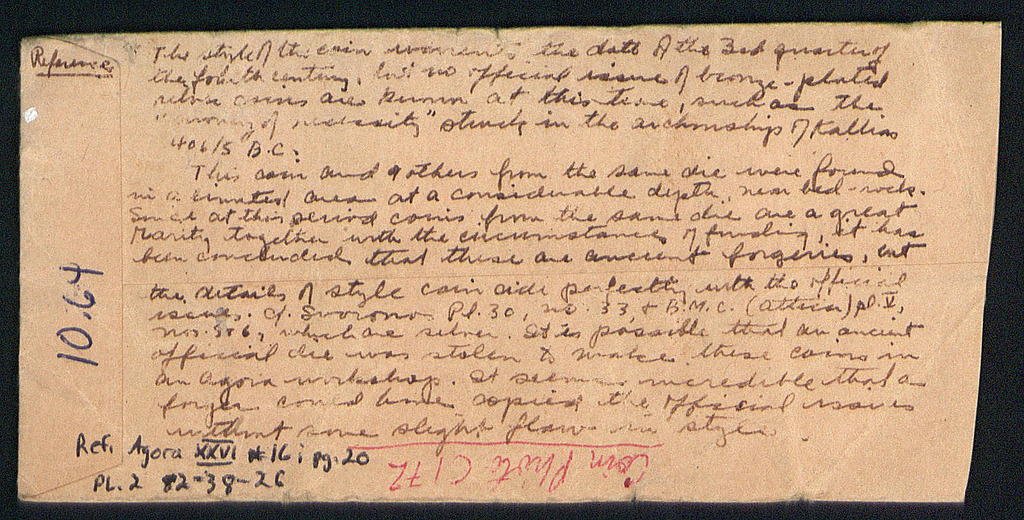 References
The style of the coin warrants the date of the 3rd quarter of
the fourth century, but no official issue of bronze-plated
silver coins are known at this time, such as the
"money of necessity" struck in the archonship of Kallias
406/5 B.C.:
This coin and 9 others from the same die were found
in a limited area at a considerable depth, near bed-rock.
Since at this period coins from the same die are a great
rarity, together with the circumstances of finding, it has
been concluded that these are ancient forgeries, but
the details of style coincide perfectly with the official
issues. cf. Svoronos Pl. 30, no. 33, & B.M.C. (Attica) pl. V,
nos. 5+6, which are silver. It is possible that an ancient
official die was stolen to make these coins in
an Agora workshop. It seems incredible that a
forger could have copied the official issues
without some slight flaw in style.
10.64
Ref: Agora XXVI #16; pg. 20
PL. 2 82-38-26
Coin Photo C172